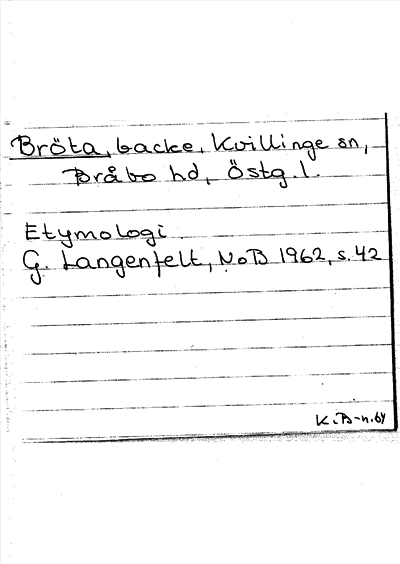 Bröta, backe, Kvillinge sn,
Bråbo hd, Östg.l.
Etymologi.
G. Langenfelt, NoB 1962, s. 42
K.B-n.64